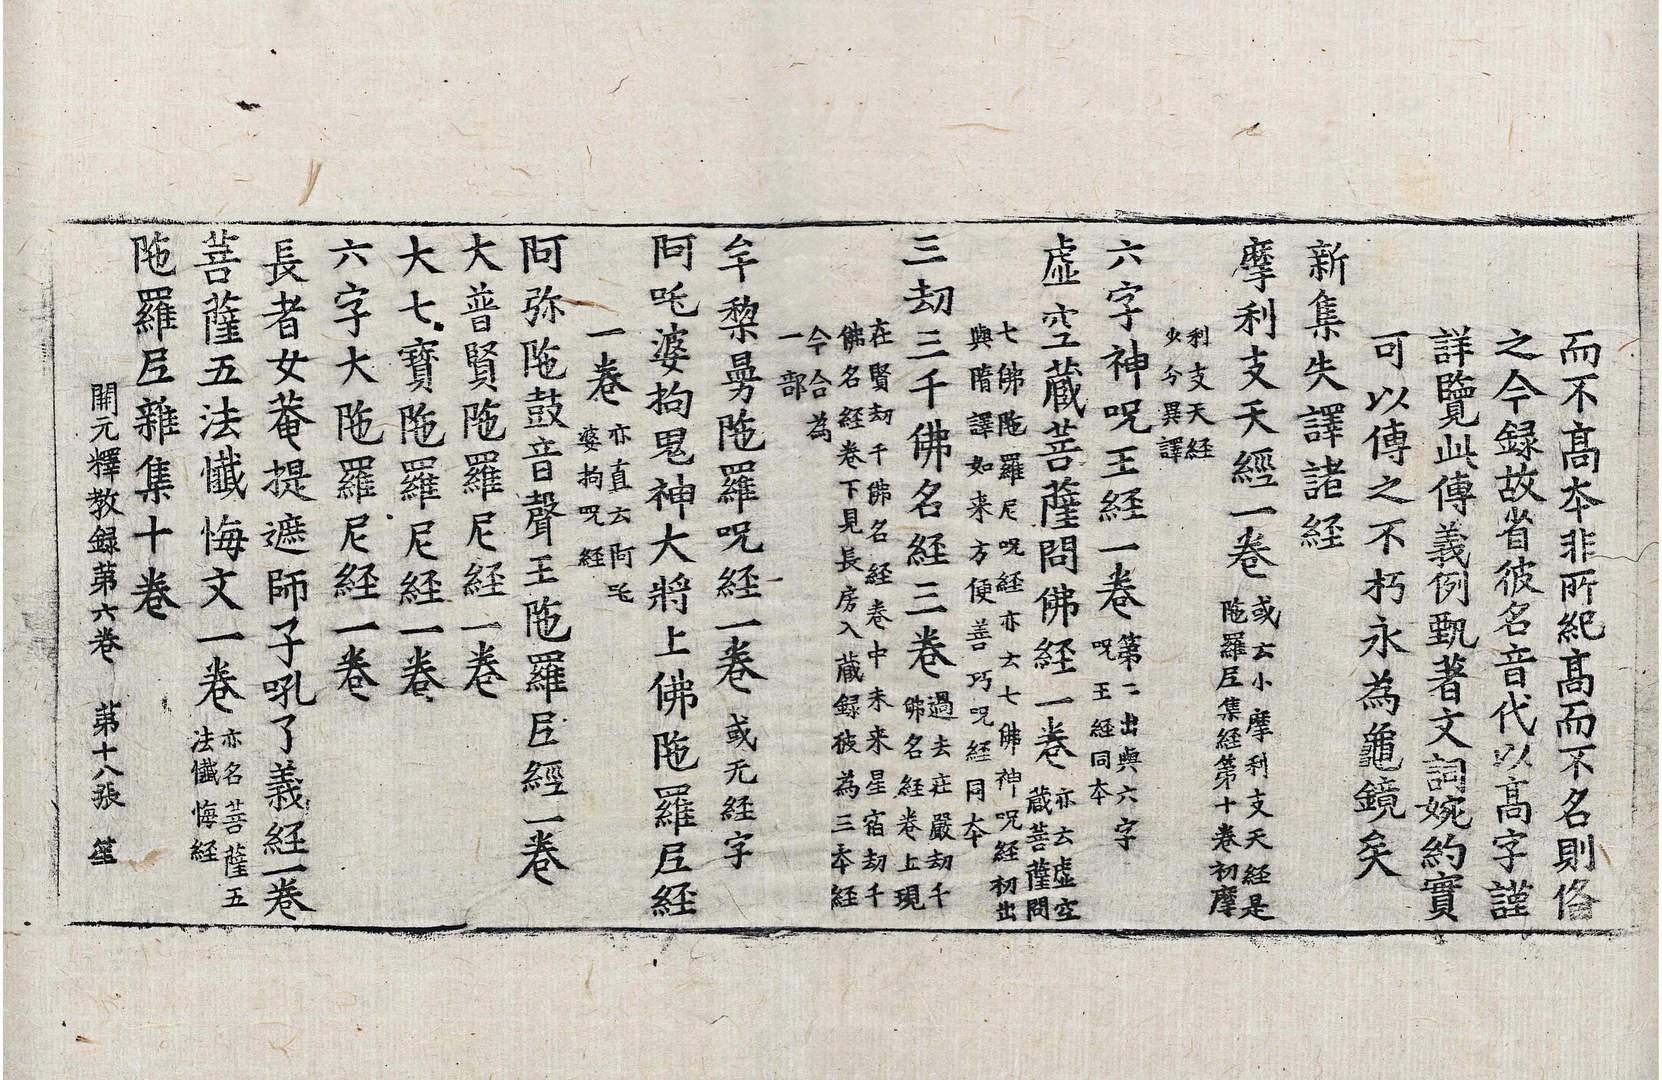 而不髙本非所紀髙而不名則俻
之今録故省彼名音代以髙字謹
詳覽此傳義例甄著文詞婉約實
可以傳之不朽永為龜鏡矣
新集失譯諸経
摩利支天經一卷或云小摩利支天經是
陁羅𡰱集経第十卷初摩
利支天経
少分異譯
六字神呪王経一卷第二出與六字
呪王経同本
虚空蔵菩薩問佛経一卷亦云虚空
蔵菩薩問
七佛陁羅尼呪経亦云七佛神呪経初出
與隋譯如来方便善巧呪経同本
三劫三千佛名経三卷過去莊嚴劫千
佛名経卷上現
在賢劫千佛名経卷中未来星宿劫千
佛名経卷下見長房入蔵録彼為三本経
今合為
一部
牟棃曼陁羅呪経一卷或无経字
阿吒婆拘鬼神大將上佛陁羅𡰱経
一卷亦直云阿吒
婆拘呪経
阿弥陁鼓音聲王陁羅𡰱經一卷
大普賢陁羅尼経一卷
大七寶陁羅尼経一卷
六字大陁羅尼経一卷
長者女菴提遮師子吼了義経一卷
菩薩五法懴悔文一卷亦名菩薩五
法懴悔経
陁羅𡰱雜集十卷
開元釋教録第六卷　第十八張　笙